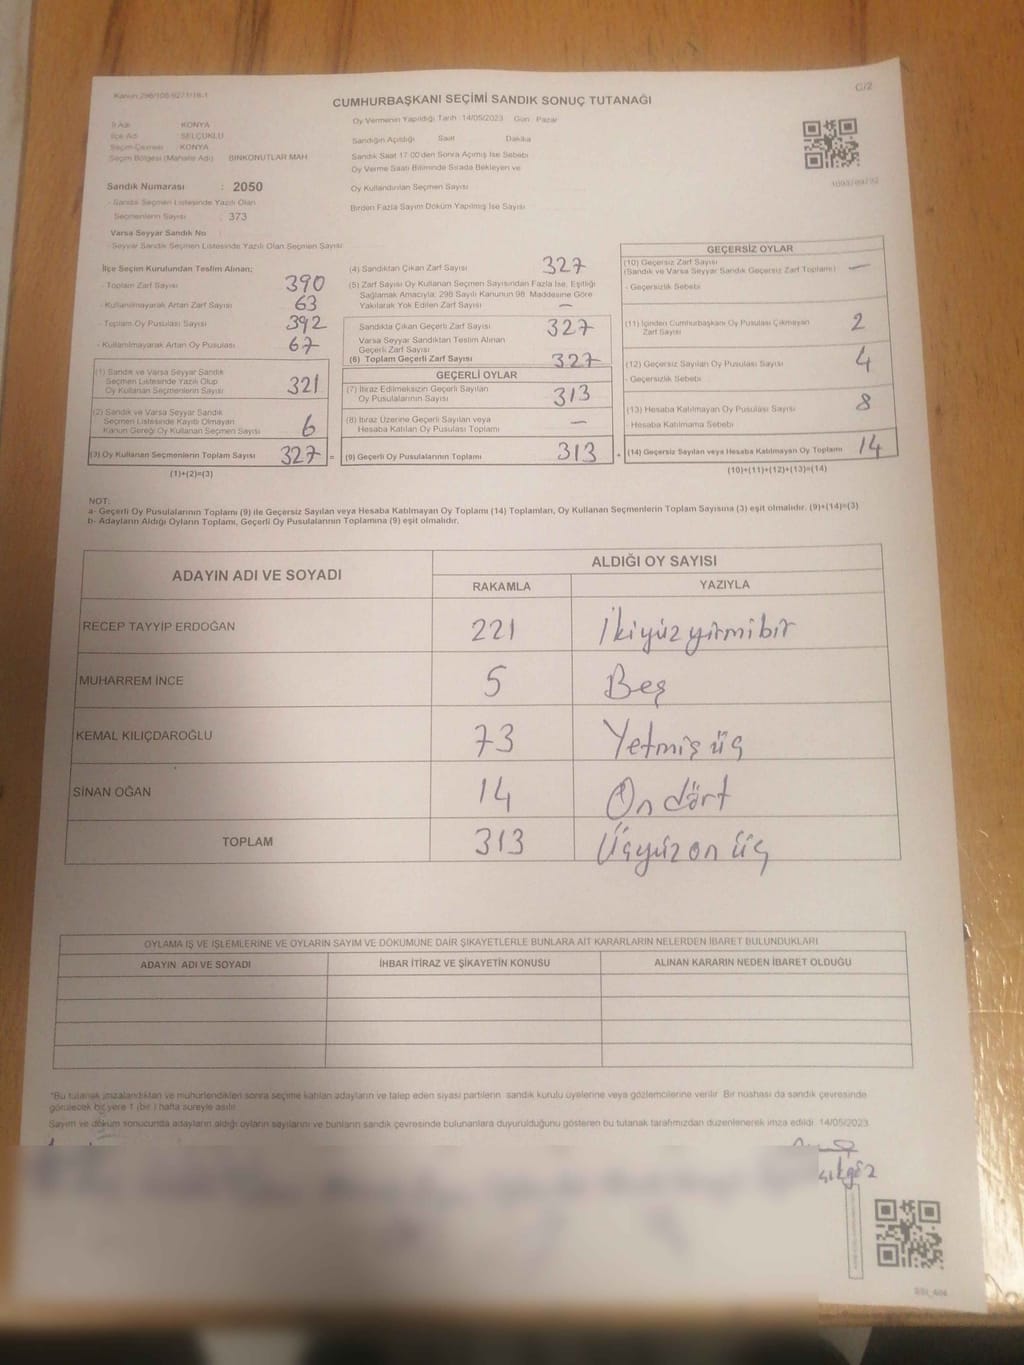 Kanun 298/105 6271/18-1
C/2
CUMHURBAŞKANI SEÇİMİ SANDIK SONUÇ TUTANAĞI
Oy Vermenin Yapıldığı Tarih 14/05/2023 Gün Pazar
İl Adı KONYA
İlçe Adı SELÇUKLU
Seçim Çevresi : KONYA
Seçim Bölgesi (Mahalle Adı) BİNKONUTLAR MAH
Sandık Numarası : 2050
- Sandık Seçmen Listesinde Yazılı Olan
Seçmenlerin Sayısı : 373
Varsa Seyyar Sandık No
- Seyyar Sandık Seçmen Listesinde Yazılı Olan Seçmen Sayısı
Sandığın Açıldığı Saat Dakika
Sandık Saat 17:00'den Sonra Açılmış İse Sebebi
Oy Verme Saati Bitiminde Sırada Bekleyen ve
Oy Kullandırılan Seçmen Sayısı
Birden Fazla Sayım Döküm Yapılmış İse Sayısı
İlçe Seçim Kurulundan Teslim Alınan;
- Toplam Zarf Sayısı 390
- Kullanılmayarak Artan Zarf Sayısı 63
- Toplam Oy Pusulası Sayısı 392
- Kullanılmayarak Artan Oy Pusulası 67
(1) Sandık ve Varsa Seyyar Sandık
Seçmen Listesinde Yazılı Olup
Oy Kullanan Seçmenlerin Sayısı 321
(2) Sandık ve Varsa Seyyar Sandık
Seçmen Listesinde Kayıtlı Olmayan
Kanun Gereği Oy Kullanan Seçmen Sayısı 6
(3) Oy Kullanan Seçmenlerin Toplam Sayısı 327 =
(1)+(2)=(3)
(4) Sandıktan Çıkan Zarf Sayısı 327
(5) Zarf Sayısı Oy Kullanan Seçmen Sayısından Fazla İse, Eşitliği
Sağlamak Amacıyla; 298 Sayılı Kanunun 98. Maddesine Göre
Yakılarak Yok Edilen Zarf Sayısı —
Sandıkta Çıkan Geçerli Zarf Sayısı 327
Varsa Seyyar Sandıktan Teslim Alınan
Geçerli Zarf Sayısı
(6) Toplam Geçerli Zarf Sayısı 327
GEÇERLİ OYLAR
(7) İtiraz Edilmeksizin Geçerli Sayılan
Oy Pusulalarının Sayısı 313
(8) İtiraz Üzerine Geçerli Sayılan veya
Hesaba Katılan Oy Pusulası Toplamı —
(9) Geçerli Oy Pusulalarının Toplamı 313 +
GEÇERSİZ OYLAR
(10) Geçersiz Zarf Sayısı
(Sandık ve Varsa Seyyar Sandık Geçersiz Zarf Toplamı) —
- Geçersizlik Sebebi
(11) İçinden Cumhurbaşkanı Oy Pusulası Çıkmayan
Zarf Sayısı 2
(12) Geçersiz Sayılan Oy Pusulası Sayısı 4
- Geçersizlik Sebebi
(13) Hesaba Katılmayan Oy Pusulası Sayısı 8
- Hesaba Katılmama Sebebi
(14) Geçersiz Sayılan veya Hesaba Katılmayan Oy Toplamı 14
(10)+(11)+(12)+(13)=(14)
NOT:
a- Geçerli Oy Pusulalarının Toplamı (9) ile Geçersiz Sayılan veya Hesaba Katılmayan Oy Toplamı (14) Toplamları, Oy Kullanan Seçmenlerin Toplam Sayısına (3) eşit olmalıdır. (9)+(14)=(3)
b- Adayların Aldığı Oyların Toplamı, Geçerli Oy Pusulalarının Toplamına (9) eşit olmalıdır.
ADAYIN ADI VE SOYADI
ALDIĞI OY SAYISI
RAKAMLA YAZIYLA
RECEP TAYYİP ERDOĞAN 221 İkiyüz yirmi bir
MUHARREM İNCE 5 Beş
KEMAL KILIÇDAROĞLU 73 Yetmiş üç
SİNAN OĞAN 14 On dört
TOPLAM 313 Üçyüz on üç
OYLAMA İŞ VE İŞLEMLERİNE VE OYLARIN SAYIM VE DÖKÜMÜNE DAİR ŞİKAYETLERLE BUNLARA AİT KARARLARIN NELERDEN İBARET BULUNDUKLARI
ADAYIN ADI VE SOYADI İHBAR İTİRAZ VE ŞİKAYETİN KONUSU ALINAN KARARIN NEDEN İBARET OLDUĞU
*Bu tutanak imzalandıktan ve mühürlendikten sonra seçime katılan adayların ve talep eden siyasi partilerin sandık kurulu üyelerine veya gözlemcilerine verilir. Bir nüshası da sandık çevresinde
görülecek bir yere 1 (bir ) hafta süreyle asılır
Sayım ve döküm sonucunda adayların aldığı oyların sayılarını ve bunların sandık çevresinde bulunanlara duyurulduğunu gösteren bu tutanak tarafımızdan düzenlenerek imza edildi. 14/05/2023